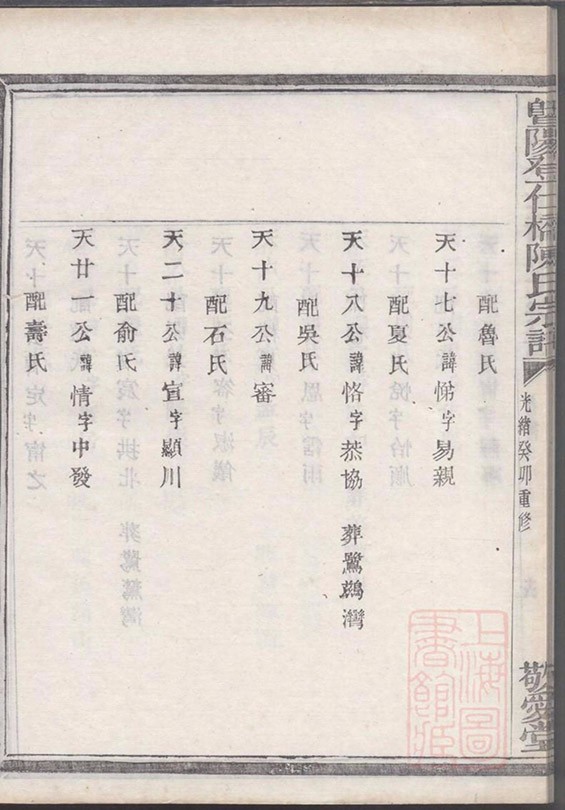 暨陽登仁橋陳氏宗譜
光緒癸卯重修
敬愛堂
配魯氏
天十七公諱悌字易親
配夏氏
天十八公諱恪字恭協 葬鷺鷀灣
配吳氏
天十九公諱審
配石氏
天二十公諱宜字顯川
配俞氏
天廿一公諱情字中發
配壽氏
上海圖書館藏